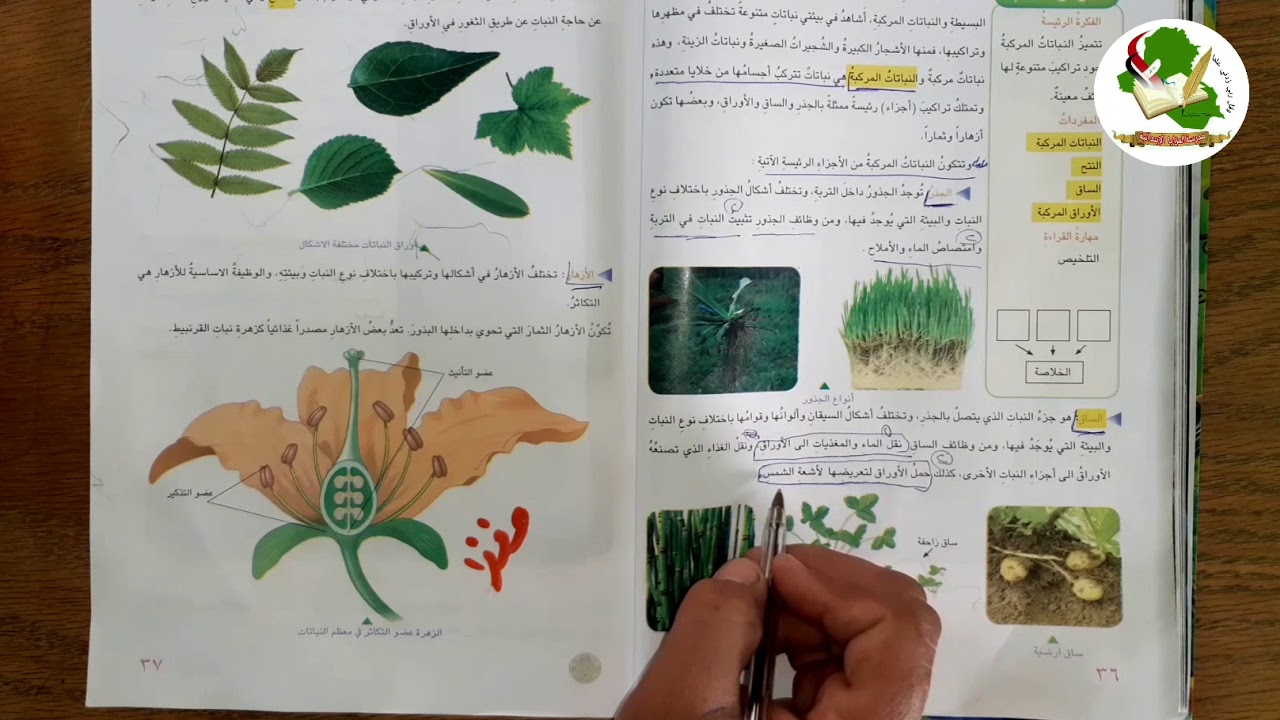 الفكرة الرئيسة
تتميزُ النباتاتُ المركبةُ
تراكيبَ متنوعةٍ لها
معينةٌ.
المفرداتُ
النباتات المركبة
النتح
الساق
الأوراق المركبة
مهارةُ القراءةِ
التلخيص
الخلاصة
البسيطةِ والنباتاتِ المركبةِ، أشاهدُ في بيئتي نباتاتٍ متنوعةً تختلفُ في مظهرِها
وتراكيبِها، فمنها الأشجارُ الكبيرةُ والشُجيراتُ الصغيرةُ ونباتاتُ الزينةِ، وهذه
نباتاتٌ مركبةٌ والنباتاتُ المركبةُ هي نباتاتٌ تتركبُ أجسامُها من خلايا متعددة
وتمتلكُ تراكيبَ (أجزاء) رئيسةً ممثلةً بالجذرِ والساقِ والأوراقِ، وبعضُها تكون
أزهاراً وثماراً.
وتتكونُ النباتاتُ المركبةُ من الأجزاءِ الرئيسةِ الآتيةِ :
الجذرُ تُوجدُ الجذورُ داخلَ التربةِ، وتختلفُ أشكالُ الجذورِ باختلافِ نوعِ
النباتِ والبيئةِ التي يُوجدُ فيها، ومن وظائفِ الجذورِ تثبيتُ النباتِ في التربةِ
وامتصاصُ الماءِ والأملاحِ.
أنواعُ الجذور
الساق: هو جزءُ النباتِ الذي يتصلُ بالجذرِ، وتختلفُ أشكالُ السيقانِ وألوانُها وقوامُها باختلافِ نوعِ النباتِ
والبيئةِ التي يُوجَدُ فيها، ومن وظائفِ الساقِ نقلُ الماءِ والمغذياتِ الى الأوراقِ، ونقلُ الغذاءِ الذي تصنعُهُ
الأوراقُ الى أجزاءِ النباتِ الأخرى، كذلك حملُ الأوراقِ لتعريضِها لأشعةِ الشمسِ.
ساق زاحفة
ساق ارضية
٣٦
عن حاجةِ النباتِ عن طريقِ الثغورِ في الأوراقِ.
أوراق النباتات مختلفة الاشكال
الأزهار : تختلفُ الأزهارُ في أشكالِها وتركيبِها باختلافِ نوعِ النباتِ وبيئتِهِ، والوظيفةُ الاساسيةُ للأزهارِ هي
التكاثرُ.
تُكوّنُ الأزهارُ الثمارَ التي تحوي بداخلِها البذورَ. تعدُّ بعضُ الأزهارِ مصدراً غذائياً كزهرةِ نباتِ القرنبيطِ.
عضو التأنيث
عضو التذكير
الزهرة عضو التكاثر في معظم النباتات
٣٧